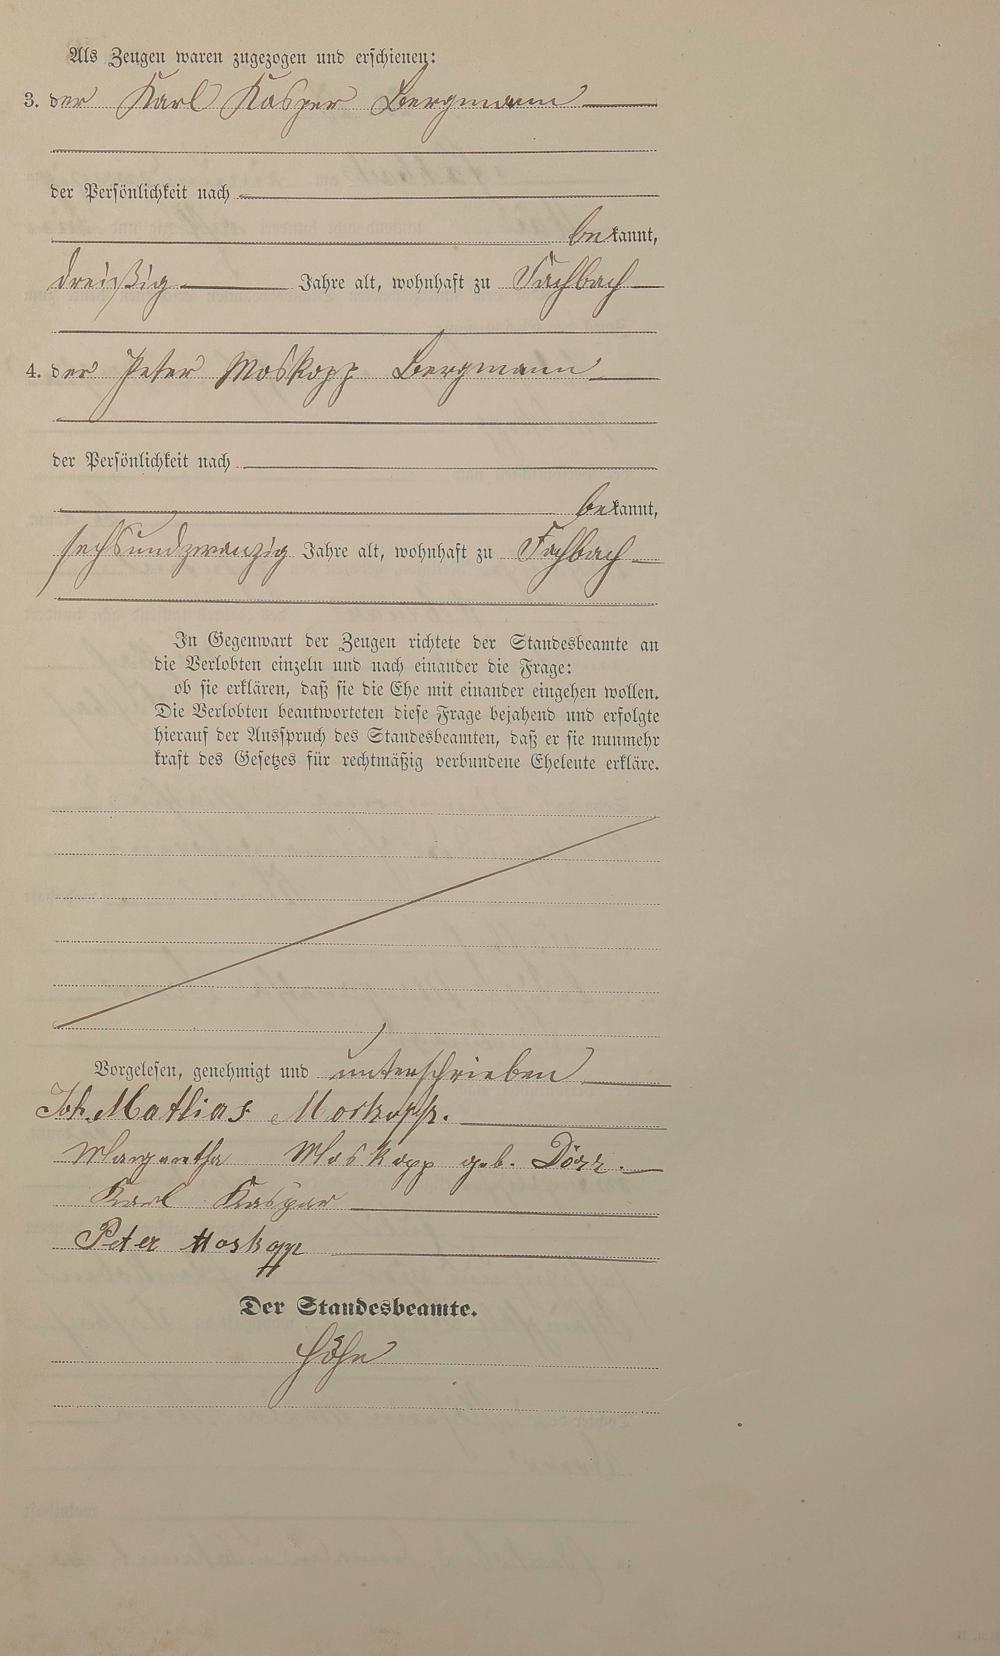 Als Zeugen waren zugezogen und erschienen:
3. der Karl Kasper Bergmann
der Persönlichkeit nach
bekannt,
dreißig Jahre alt, wohnhaft zu Fachbach
4. der Peter Moskopp Bergmann
der Persönlichkeit nach
bekannt,
sechsundzwanzig Jahre alt, wohnhaft zu Fachbach
In Gegenwart der Zeugen richtete der Standesbeamte an
die Verlobten einzeln und nach einander die Frage:
ob sie erklären, daß sie die Ehe mit einander eingehen wollen.
Die Verlobten beantworteten diese Frage bejahend und erfolgte
hierauf der Ausspruch des Standesbeamten, daß er sie nunmehr
kraft des Gesetzes für rechtmäßig verbundene Eheleute erkläre.
Vorgelesen, genehmigt und unterschrieben
Joh. Mathias Moskopp.
Margaretha Moskopp geb. Dörr.
Karl Kaspar
Peter Moskopp
Der Standesbeamte.
Höhn